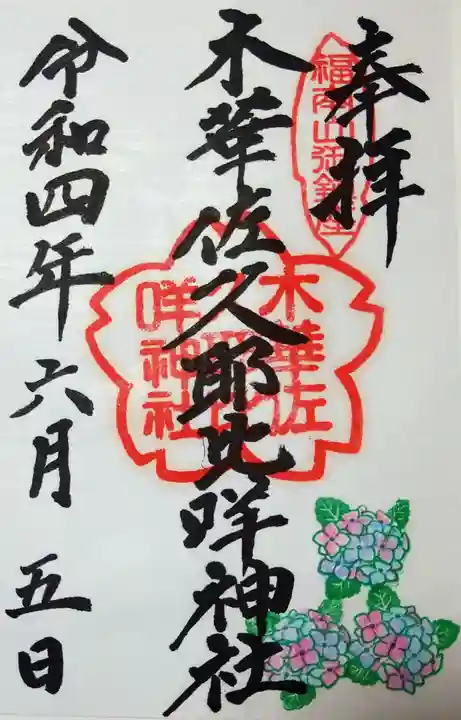 奉拝
福南山御鎮座
木華佐久耶比咩神社
木華佐
咩神社
令和四年六月五日